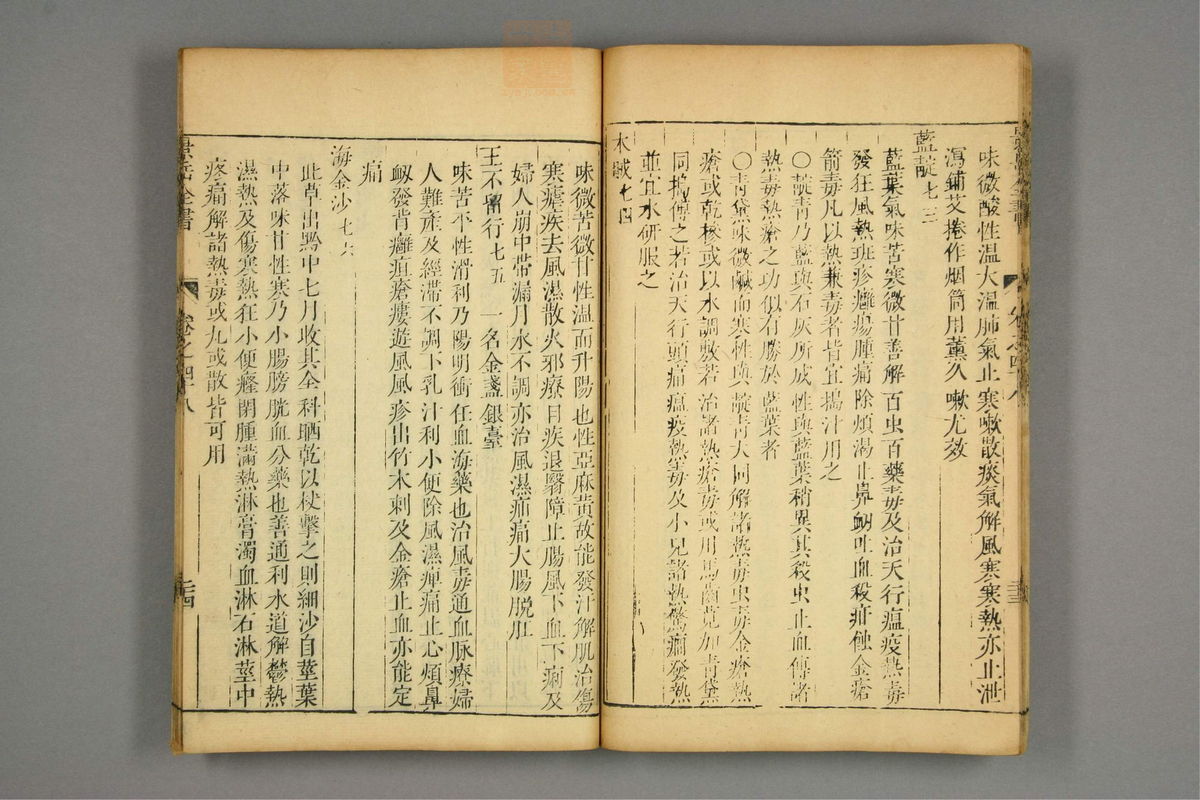 味微酸性温大温肺氣止寒嗽散痰氣解風寒寒熱亦止泄
瀉鋪艾捲作烟筒用薰久嗽尤效
藍靛七三
藍葉氣味苦寒微甘善解百虫百藥毒及治天行瘟疫熱毒
發狂風熱斑疹癰瘍腫痛除煩渴止鼻衂吐血殺疳蝕金瘡
箭毒凡以熱兼毒者皆宜搗汁用之
○靛青乃藍與石灰所成性與藍葉稍異其殺虫止血傅諸
熱毒熱瘡之功似有勝於藍葉者
○青黛味微鹹而寒性與靛青大同解諸熱毒虫毒金瘡熱
瘡或乾糝或以水調敷若治諸熱瘡毒或用馬齒莧加青黛
同搗傅之若治天行頭痛瘟疫熱毒及小兒諸熱驚癇發熱
並宜水研服之
木賊七四
味微苦微甘性温而升陽也性亞麻黄故能發汗解肌治傷
寒瘧疾去風濕散火邪療目疾退翳障止腸風下血下痢及
婦人崩中帶漏月水不調亦治風濕疝痛大腸脫肛
王不留行七五 一名金盞銀臺
味苦平性滑利乃陽明衝任血海藥也治風毒通血脉療婦
人難産及經滯不調下乳汁利小便除風濕痺痛止心煩鼻
衂發背癰疽瘡瘻遊風風疹出竹木刺及金瘡止血亦能定
痛
海金沙七六
此草出黔中七月收其全科晒乾以杖擊之則細沙自莖葉
中落味甘性寒乃小腸膀胱血分藥也善通利水道解鬱熱
濕熱及傷寒熱狂小便癃閉腫滿熱淋膏濁血淋石淋莖中
疼痛解諸熱毒或丸或散皆可用
景岳全書
卷之四十八
二十四